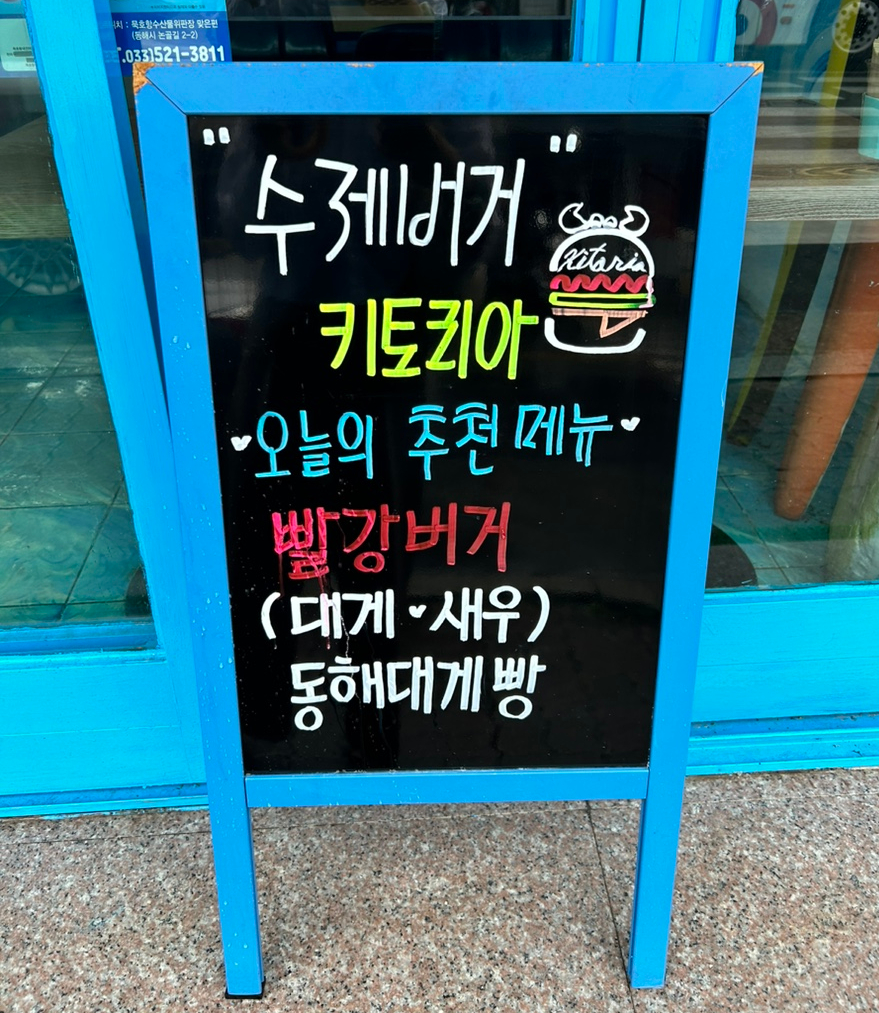 위치 : 묵호항수산물위판장 맞은편
(동해시 논골길 2-2)
.033)521-3811
"수제버거"
Kitaria
키토리아
오늘의 추천 메뉴
빨강버거
(대게·새우)
동해대게빵